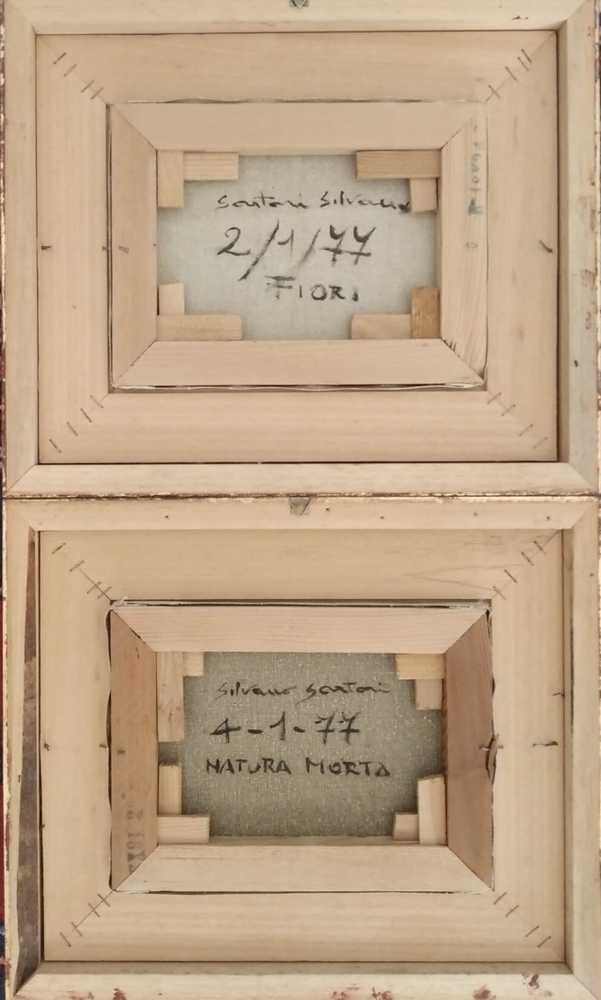 Sartori Silvano
2/1/77
FIORI
Silvano Sartori
4-1-77
NATURA MORTA